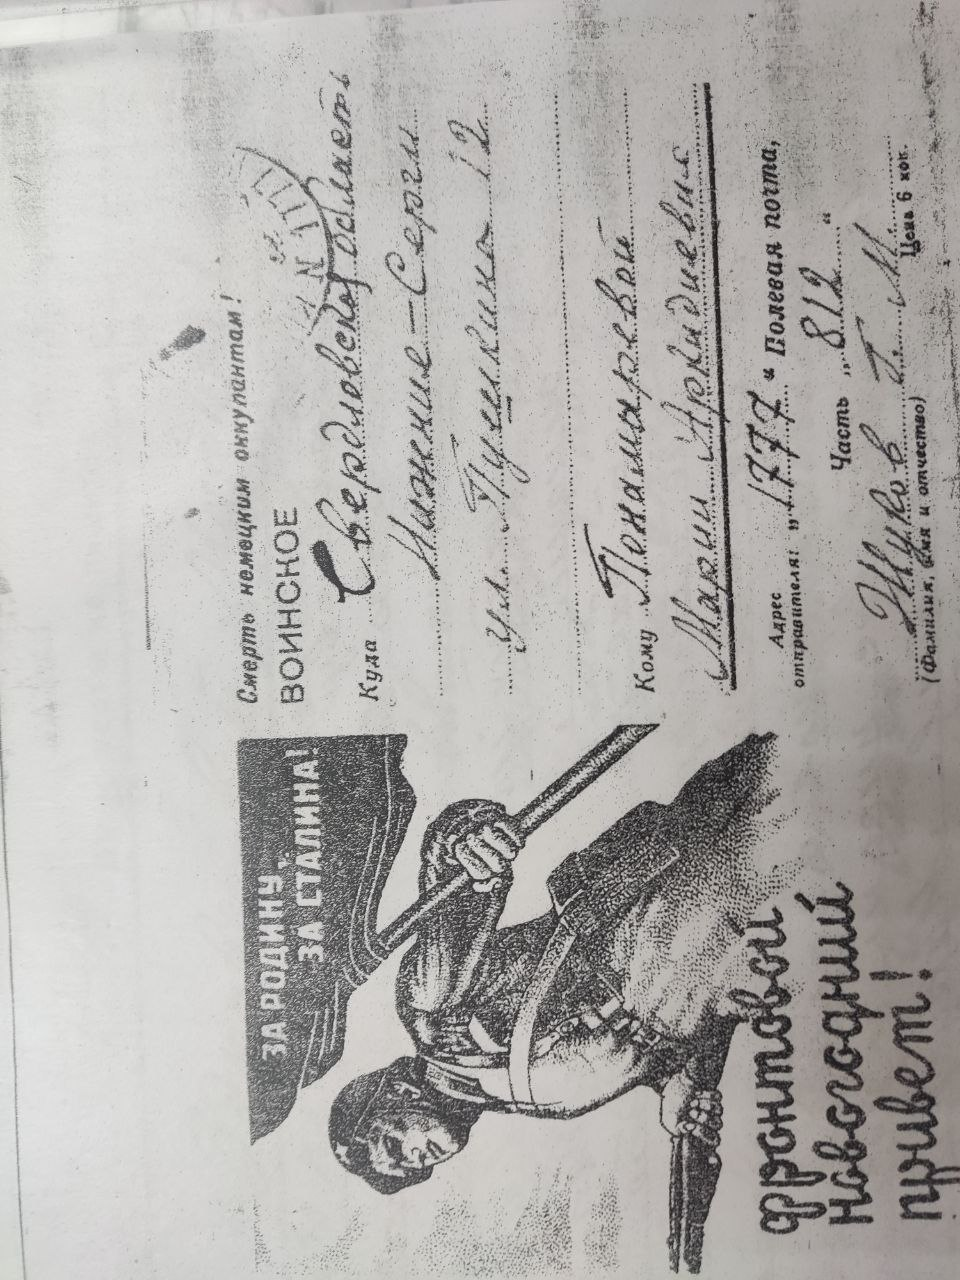 ЗА РОДИНУ,
ЗА СТАЛИНА!
фронтовой
новогодний
привет!
Смерть немецким оккупантам!
ВОИНСКОЕ
Куда Свердловской область
Нижние-Серги
ул. Пушкина 12
Кому Понамаревой
Марии Аркидиевич
Адрес
отправителя: „1777“ Полевая почта,
Часть „812“
Жуков Г. М.
(Фамилия, имя и отчество)
Цена 6 коп.